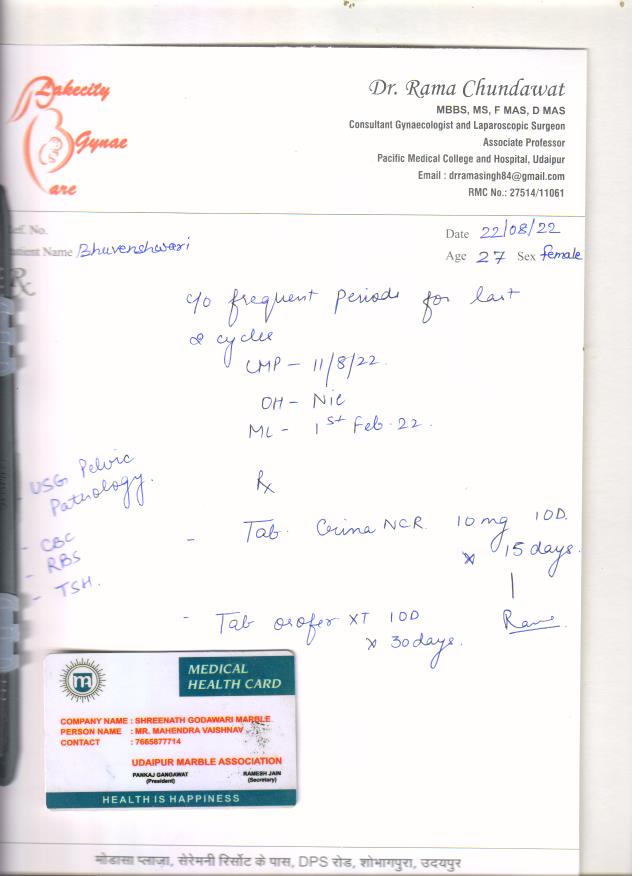 Lakecity
Gynae
Care
Dr. Rama Chundawat
MBBS, MS, F MAS, D MAS
Consultant Gynaecologist and Laparoscopic Surgeon
Associate Professor
Pacific Medical College and Hospital, Udaipur
Email : drramasingh84@gmail.com
RMC No.: 27514/11061
ef. No.
Date 22/08/22
atient Name Bhuvenshwari
Age 27 Sex female
Rx
c/o frequent periods for last
2 cycles
LMP - 11/8/22.
OH - Nil
ML - 1st Feb. 22.
Rx
- USG Pelvic
- CBC
- RBS
- TSH.
- Tab. Crina NCR 10 mg 1OD
x 15 days.
- Tab orofer XT 1OD
x 30 days.
MEDICAL
HEALTH CARD
COMPANY NAME : SHREENATH GODAWARI MARBLE
PERSON NAME : MR. MAHENDRA VAISHNAV
CONTACT : 7665877714
UDAIPUR MARBLE ASSOCIATION
PANKAJ GANGAWAT RAMESH JAIN
(President) (Secretary)
HEALTH IS HAPPINESS
मोडासा प्लाज़ा, सेरेमनी रिर्सोट के पास, DPS रोड, शोभागपुरा, उदयपुर